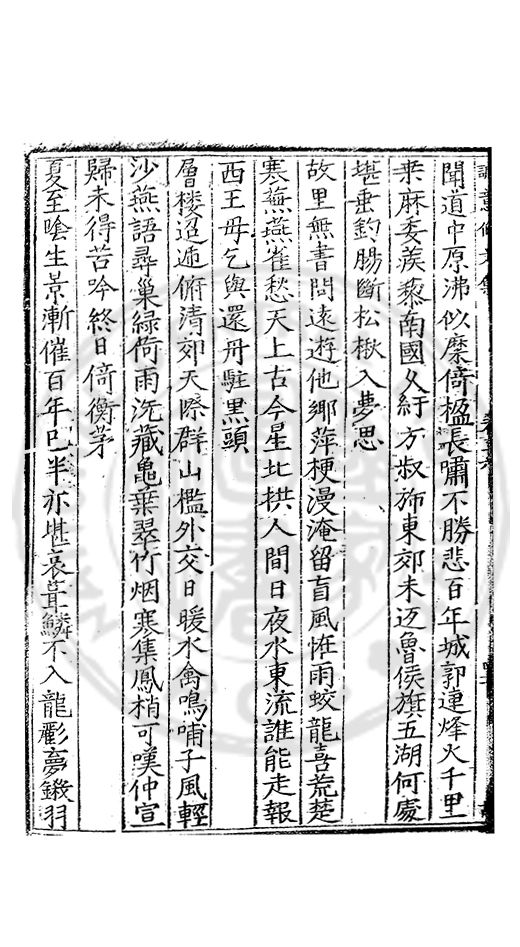 聞道中原沸似糜倚楹長嘯不勝悲百年城郭連烽火千里
桒麻委蒺藜南國久紆方叔斾東郊未迈魯侯旗五湖何處
堪垂釣腸斷松楸入夢思
故里無書問遠遊他鄉萍梗漫淹留盲風恠雨蛟龍喜荒楚
寒蕪燕雀愁天上古今星北拱人間日夜水東流誰能走報
西王母乞與還丹駐黒頭
層楼迢逓俯清郊天際群山檻外交日暖水禽鳴哺子風輕
沙燕語尋巢緑荷雨洗藏亀葉翠竹烟寒集鳳梢可嘆仲宣
歸未得苦吟終日倚衡茅
夏至陰生景漸催百年已半亦堪哀葺鱗不入龍夢鎩羽